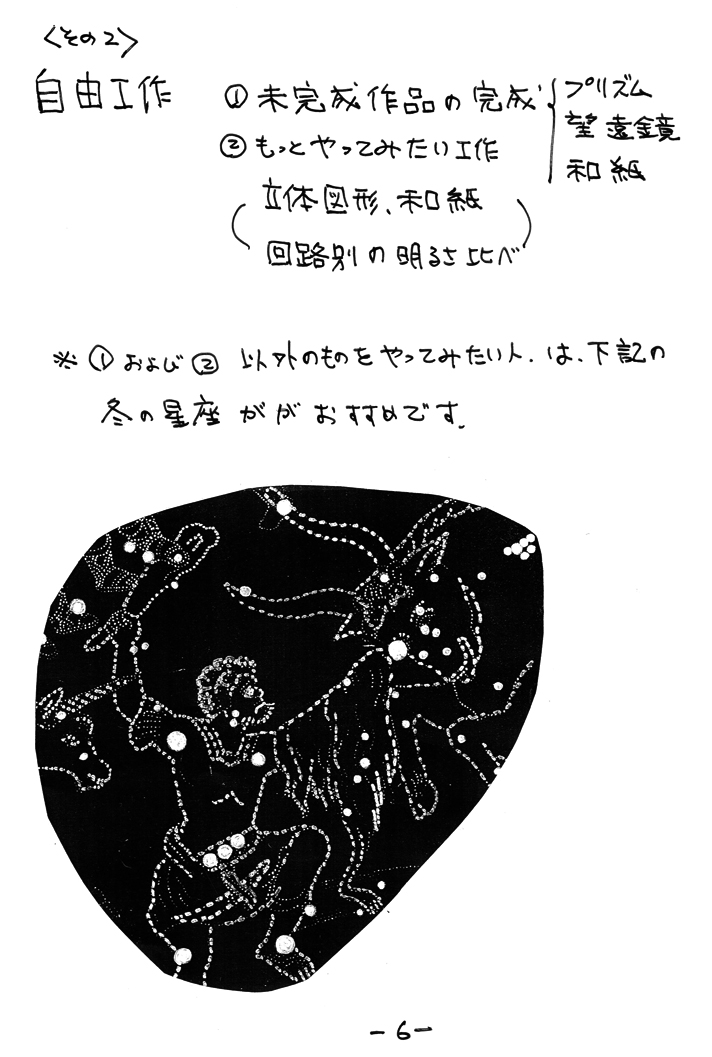 〈その2〉
自由工作 ① 未完成作品の完成 プリズム
望遠鏡
② もっとやってみたい工作
和紙
立体図形、和紙
回路別の明るさ比べ
※ ① および ② 以外のものをやってみたい人. は、下記の
冬の星座 がが おすすめです.
-6-